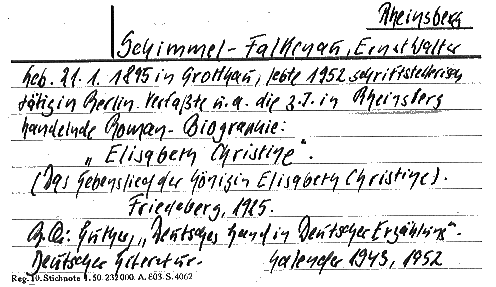 Rheinsberg
Schimmel-Falkenau, Ernst Walter
Geb. 21.1.1895 in Grottkau, lebte 1952 schriftstellerisch
tätig in Berlin. Verfaßte u.a. die z.T. in Rheinsberg
handelnde Roman-Biographie:
„Elisabeth Christine".
(Das Lebenslied der Königin Elisabeth Christine).
Friedeberg, 1925.
Luther, „Deutsches Land in Deutscher Erzählung".
Deutscher Literatur-Kalender 1943, 1952
Reg. 10. Stichnote 1. 50. 232000. A. 803. S. 4062